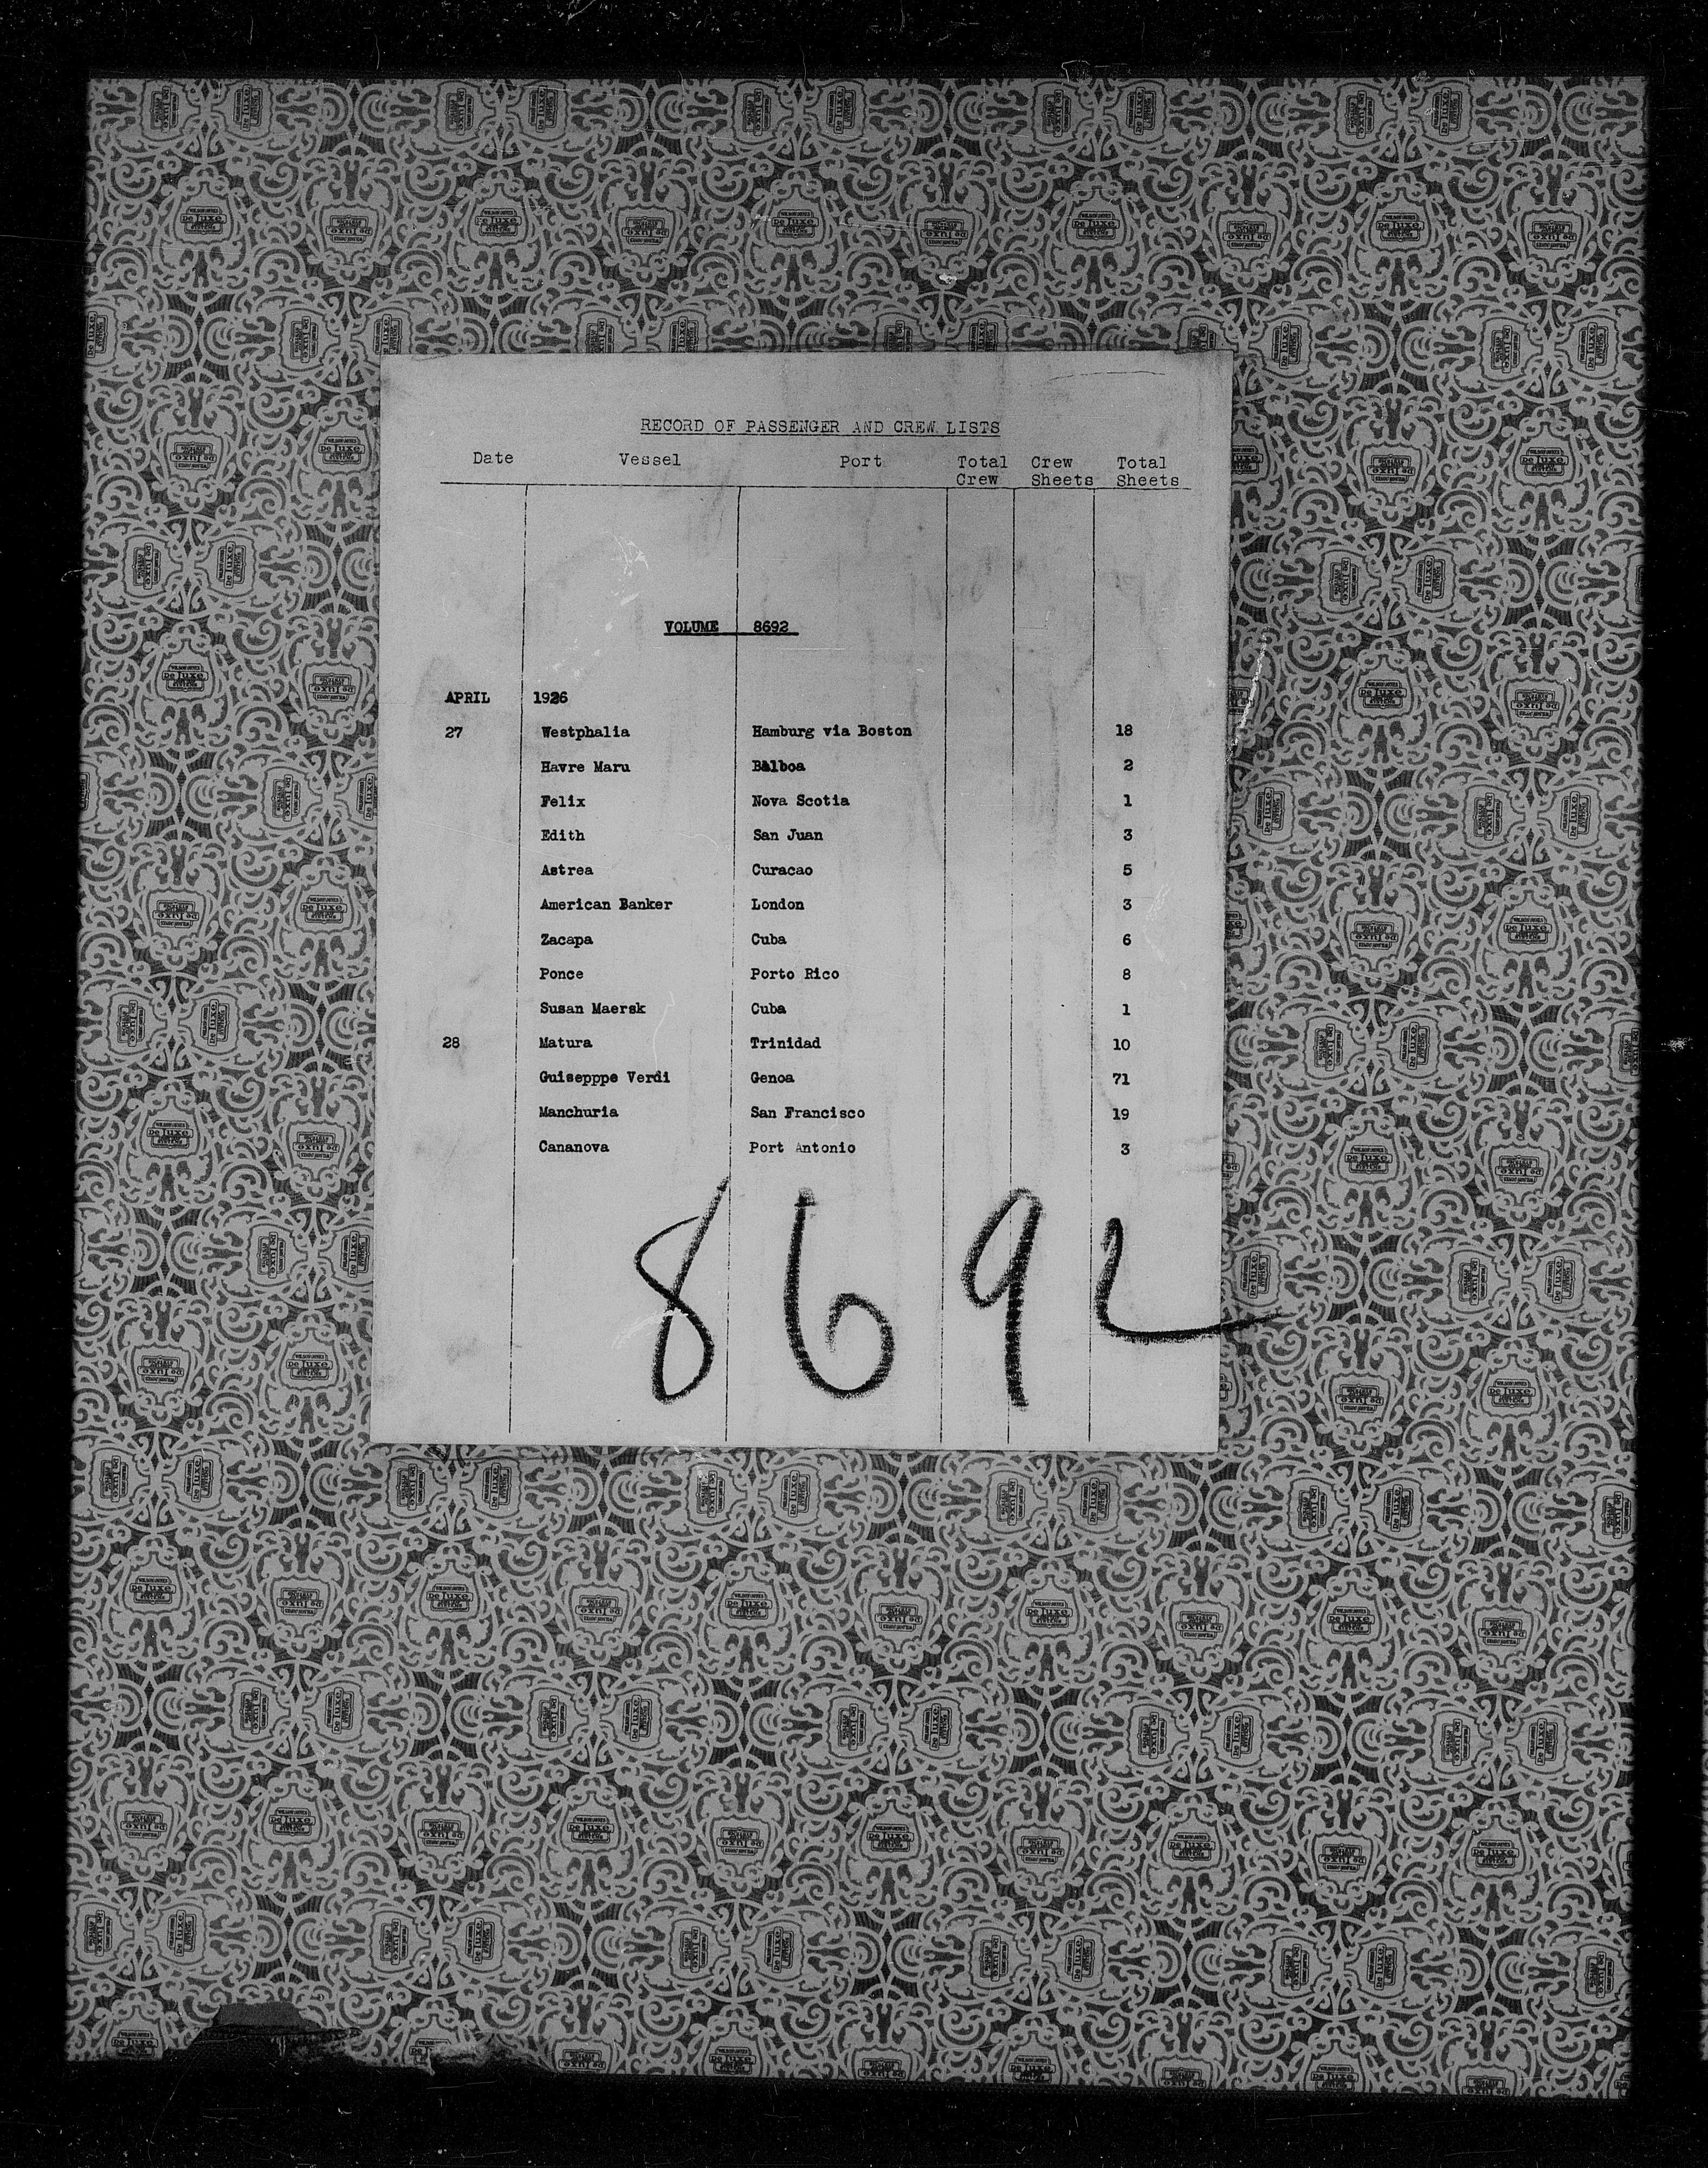 RECORD OF PASSENGER AND CREW LISTS
Date Vessel Port Total Crew Crew Sheets Total Sheets
VOLUME 8692
APRIL 1926
27 Westphalia Hamburg via Boston 18
Havre Maru Balboa 2
Felix Nova Scotia 1
Edith San Juan 3
Astrea Curacao 5
American Banker London 3
Zacapa Cuba 6
Ponce Porto Rico 8
Susan Maersk Cuba 1
28 Matura Trinidad 10
Guisepppe Verdi Genoa 71
Manchuria San Francisco 19
Cananova Port Antonio 3
8692